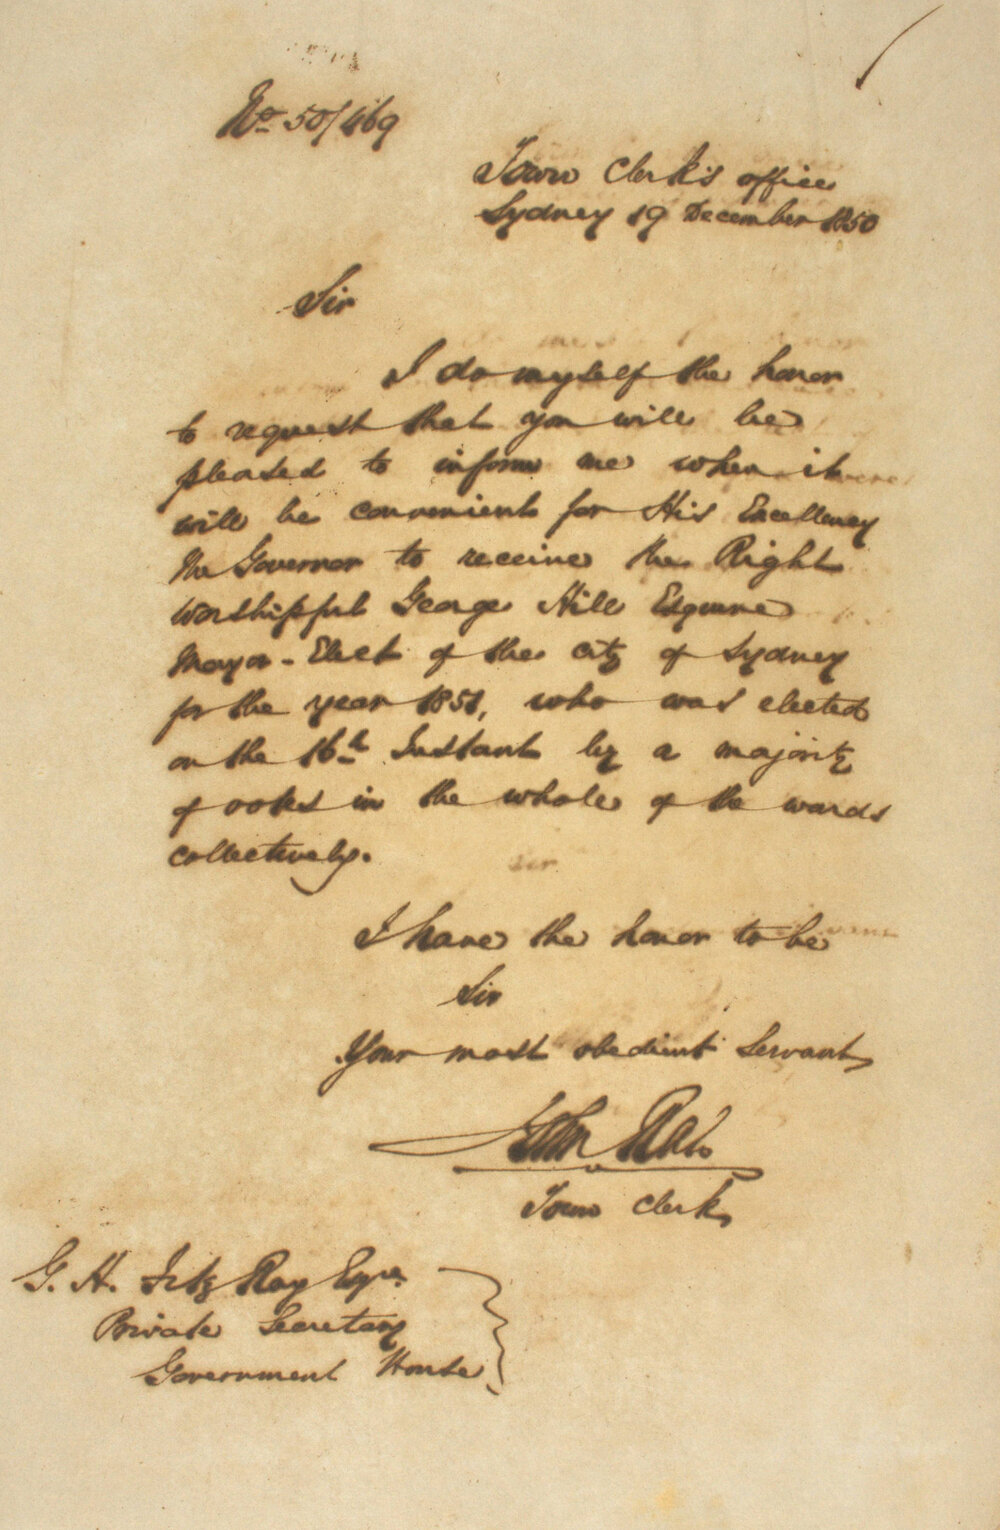 No. 50/469
Town Clerk's office
Sydney 19 December 1850
Sir
I do myself the honor
to request that you will be
pleased to inform me when it
will be convenient for His Excellency
the Governor to receive the Right
Worshipful George Hill Esquire
Mayor-Elect of the City of Sydney
for the year 1851, who was elected
on the 16th Instant by a majority
of votes in the whole of the wards
collectively.
I have the honor to be
Sir
Your most obedient Servant
John Rae
Town Clerk
G. H. Fitz Roy Esqre.
Private Secretary
Government House